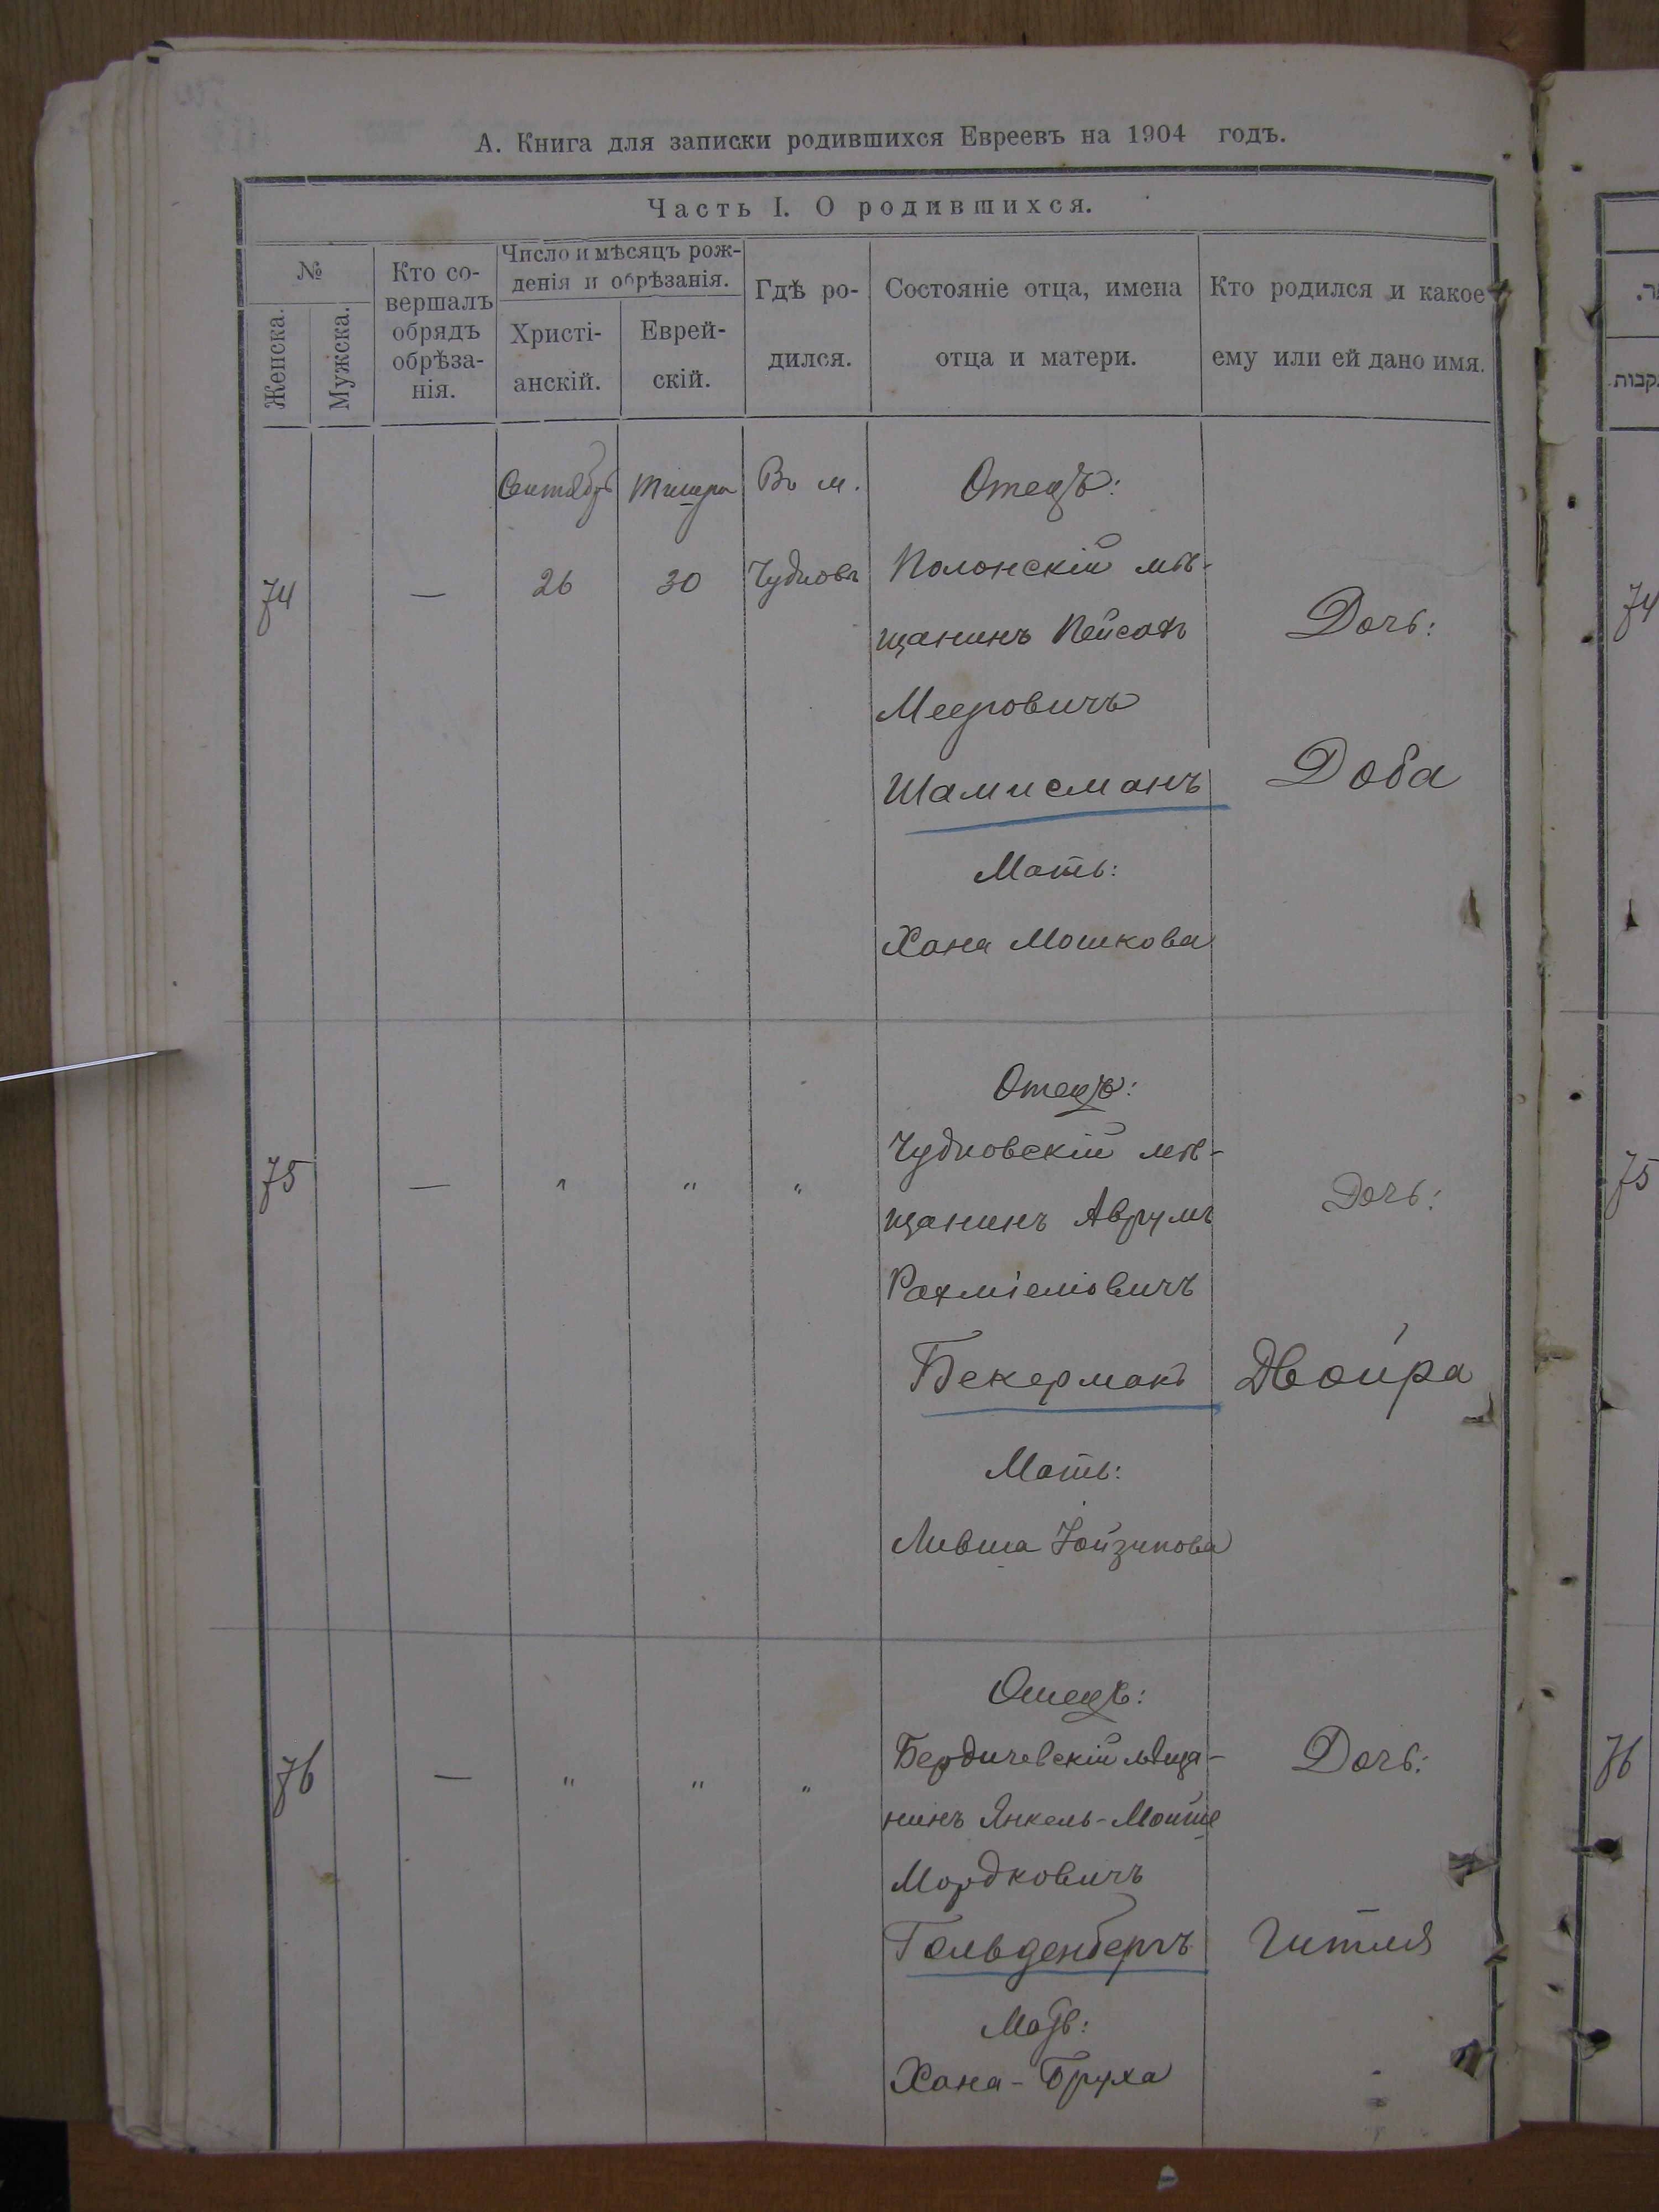 А. Книга для записки родившихся Евреевъ на 1904 годъ.
Часть I. О родившихся.
№
Женска.
Мужска.
Кто со-
вершалъ
обрядъ
обрѣза-
нія.
Число и мѣсяцъ рож-
денія и обрѣзанія.
Христі-
анскій.
Еврей-
скій.
Гдѣ ро-
дился.
Состояніе отца, имена
отца и матери.
Кто родился и какое
ему или ей дано имя.
74
—
Сентябрь
26
Тишри
30
Въ м.
Чудновѣ
Отецъ:
Полонскій мѣ-
щанинъ Пейсахъ
Мееровичъ
Шамисманъ
Мать:
Хана Мошкова
Дочь:
Доба
75
—
"
"
"
Отецъ:
Чудновскій мѣ-
щанинъ Аврумъ
Рахміеліовичъ
Бекерманъ
Мать:
Ливша
Дочь:
Двойра
76
—
"
"
"
Отецъ:
Бердичевскій мѣща-
нинъ Янкель-Мойше
Мордковичъ
Гольденбергъ
Мать:
Хана-Бруха
Дочь:
Гитля
74
75
76